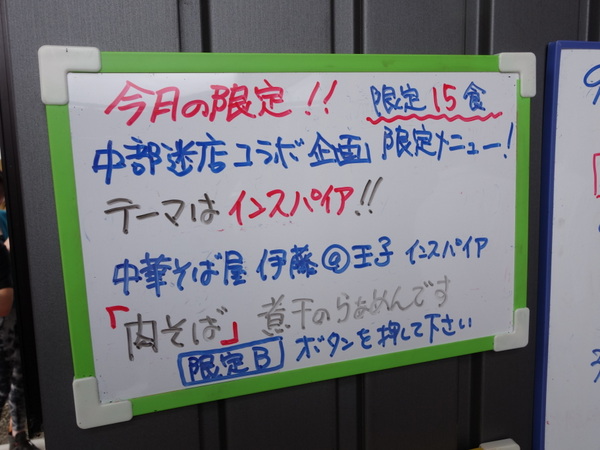 今月の限定!! 限定15食
中部迷店コラボ企画」限定メニュー!
テーマはインスパイア!!
中華そば屋 伊藤@王子 インスパイア
「肉そば」煮干のらぁめんです
限定B ボタンを押して下さい